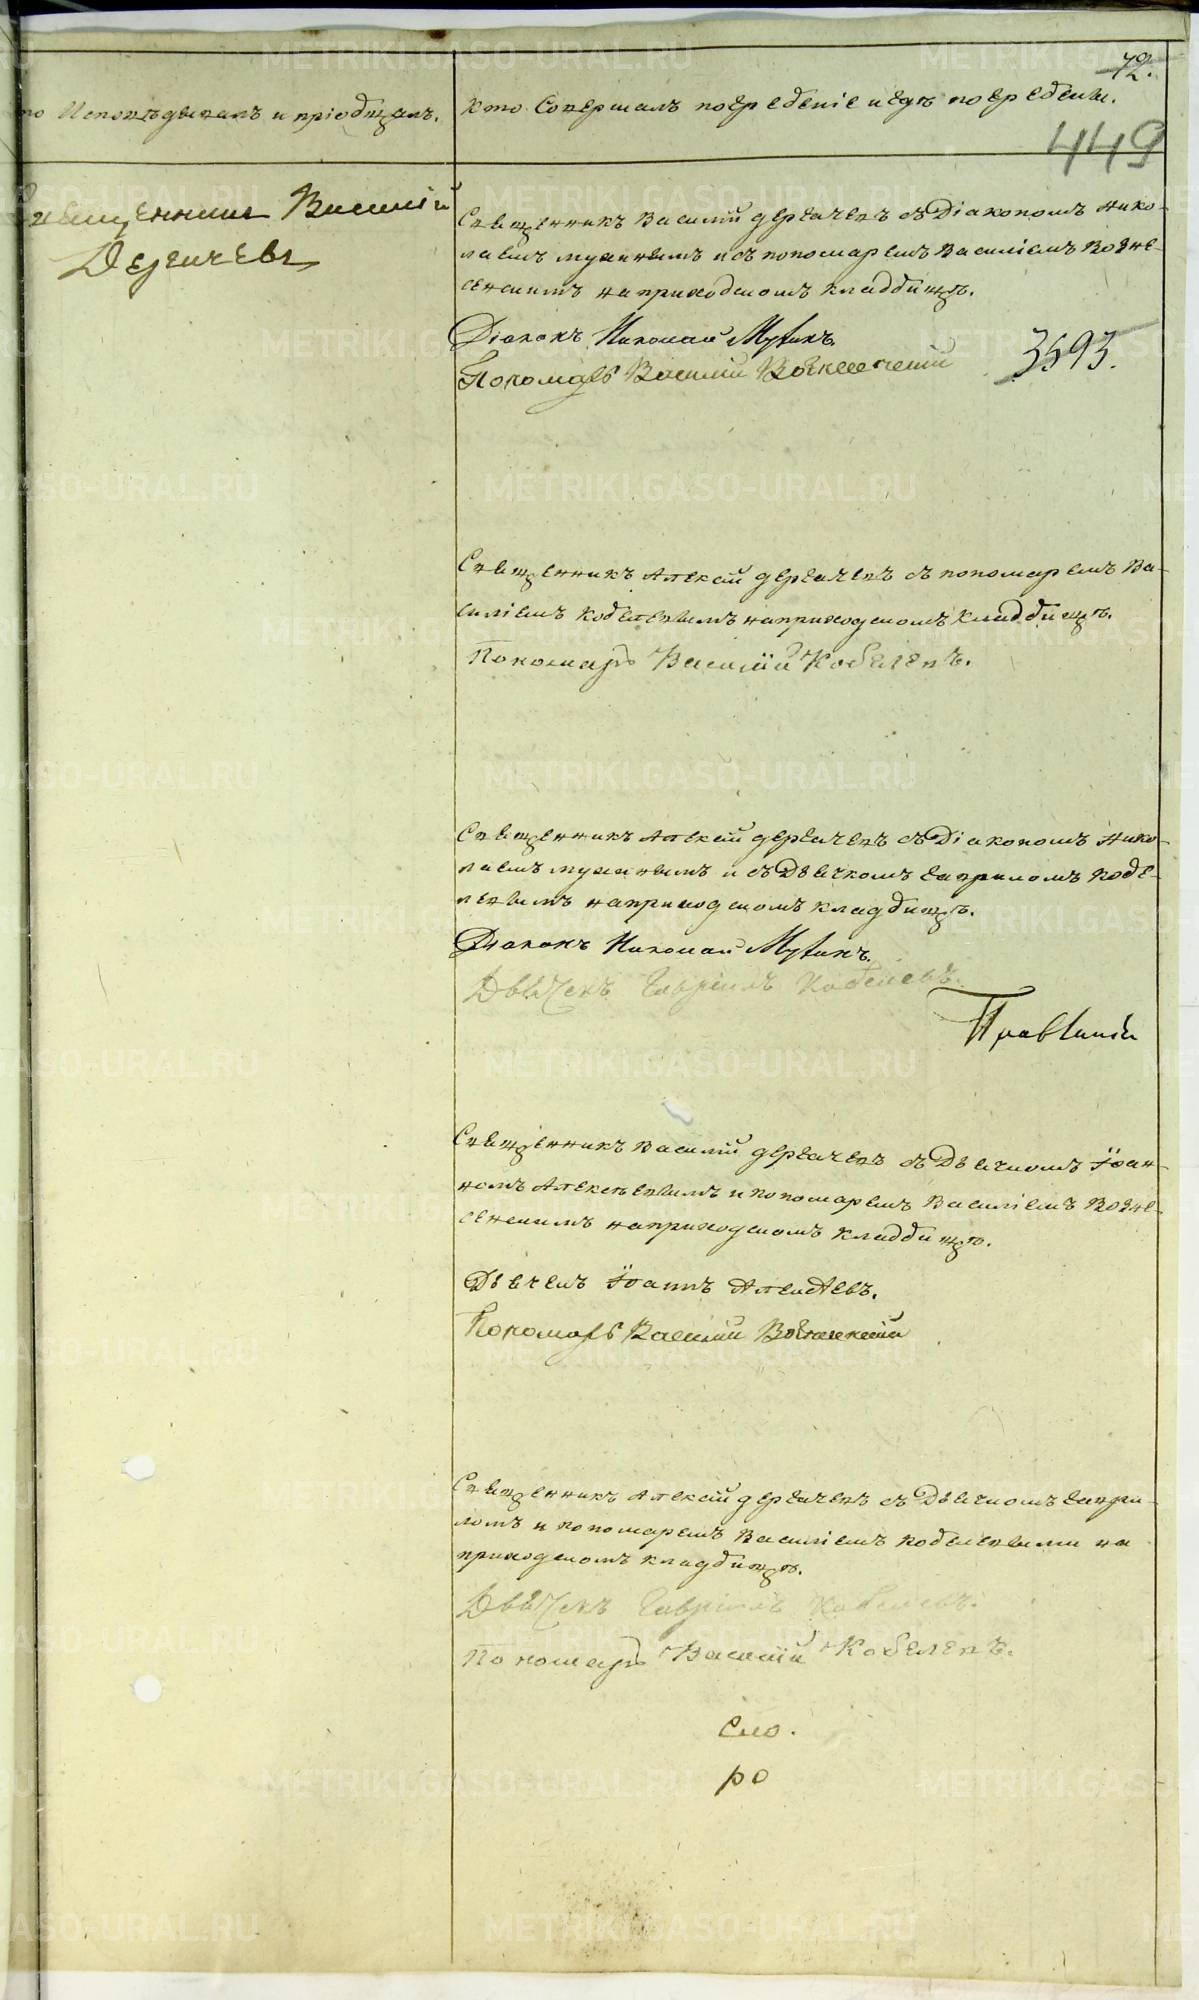 72.
Кто Исповѣдывалъ и пріобщалъ.
Кто Совершалъ погребеніе и гдѣ погребены.
449
Священникъ Василій
Дергачевъ
Священникъ Василій Дергачевъ съ Діакономъ Нико-
лаемъ Мухинымъ и съ пономаремъ Василіемъ Возне-
сенскимъ на приходскомъ кладбищѣ.
Діаконъ Николай Мухинъ.
Пономарь Василий Вознесенский
3593.
Священникъ Алексій Дергачевъ съ пономаремъ Ва-
силіемъ Кобелевымъ на приходскомъ кладбищѣ.
Пономарь Василій Кобелевъ.
Священникъ Алексій Дергачевъ съ Діакономъ Нико-
лаемъ Мухинымъ и съ Дьячкомъ Гавриломъ Кобе-
левымъ на приходскомъ кладбищѣ.
Діаконъ Николай Мухинъ.
Дьячекъ Гавріилъ Кобелевъ.
Священникъ Василій Дергачевъ съ Дьячкомъ Іоан-
номъ Алексѣевымъ и пономаремъ Василіемъ Возне-
сенскимъ на приходскомъ кладбищѣ.
Дьячекъ Іоаннъ Алексѣевъ.
Пономарь Василий Вознесенский
Священникъ Алексій Дергачевъ съ Дьячкомъ Гаври-
ломъ и пономаремъ Василіемъ Кобелевыми на
приходскомъ кладбищѣ.
Дьячекъ Гавріилъ Кобелевъ.
Пономарь Василій Кобелевъ.
ско.
ро
METRIKI.GASO-URAL.RU